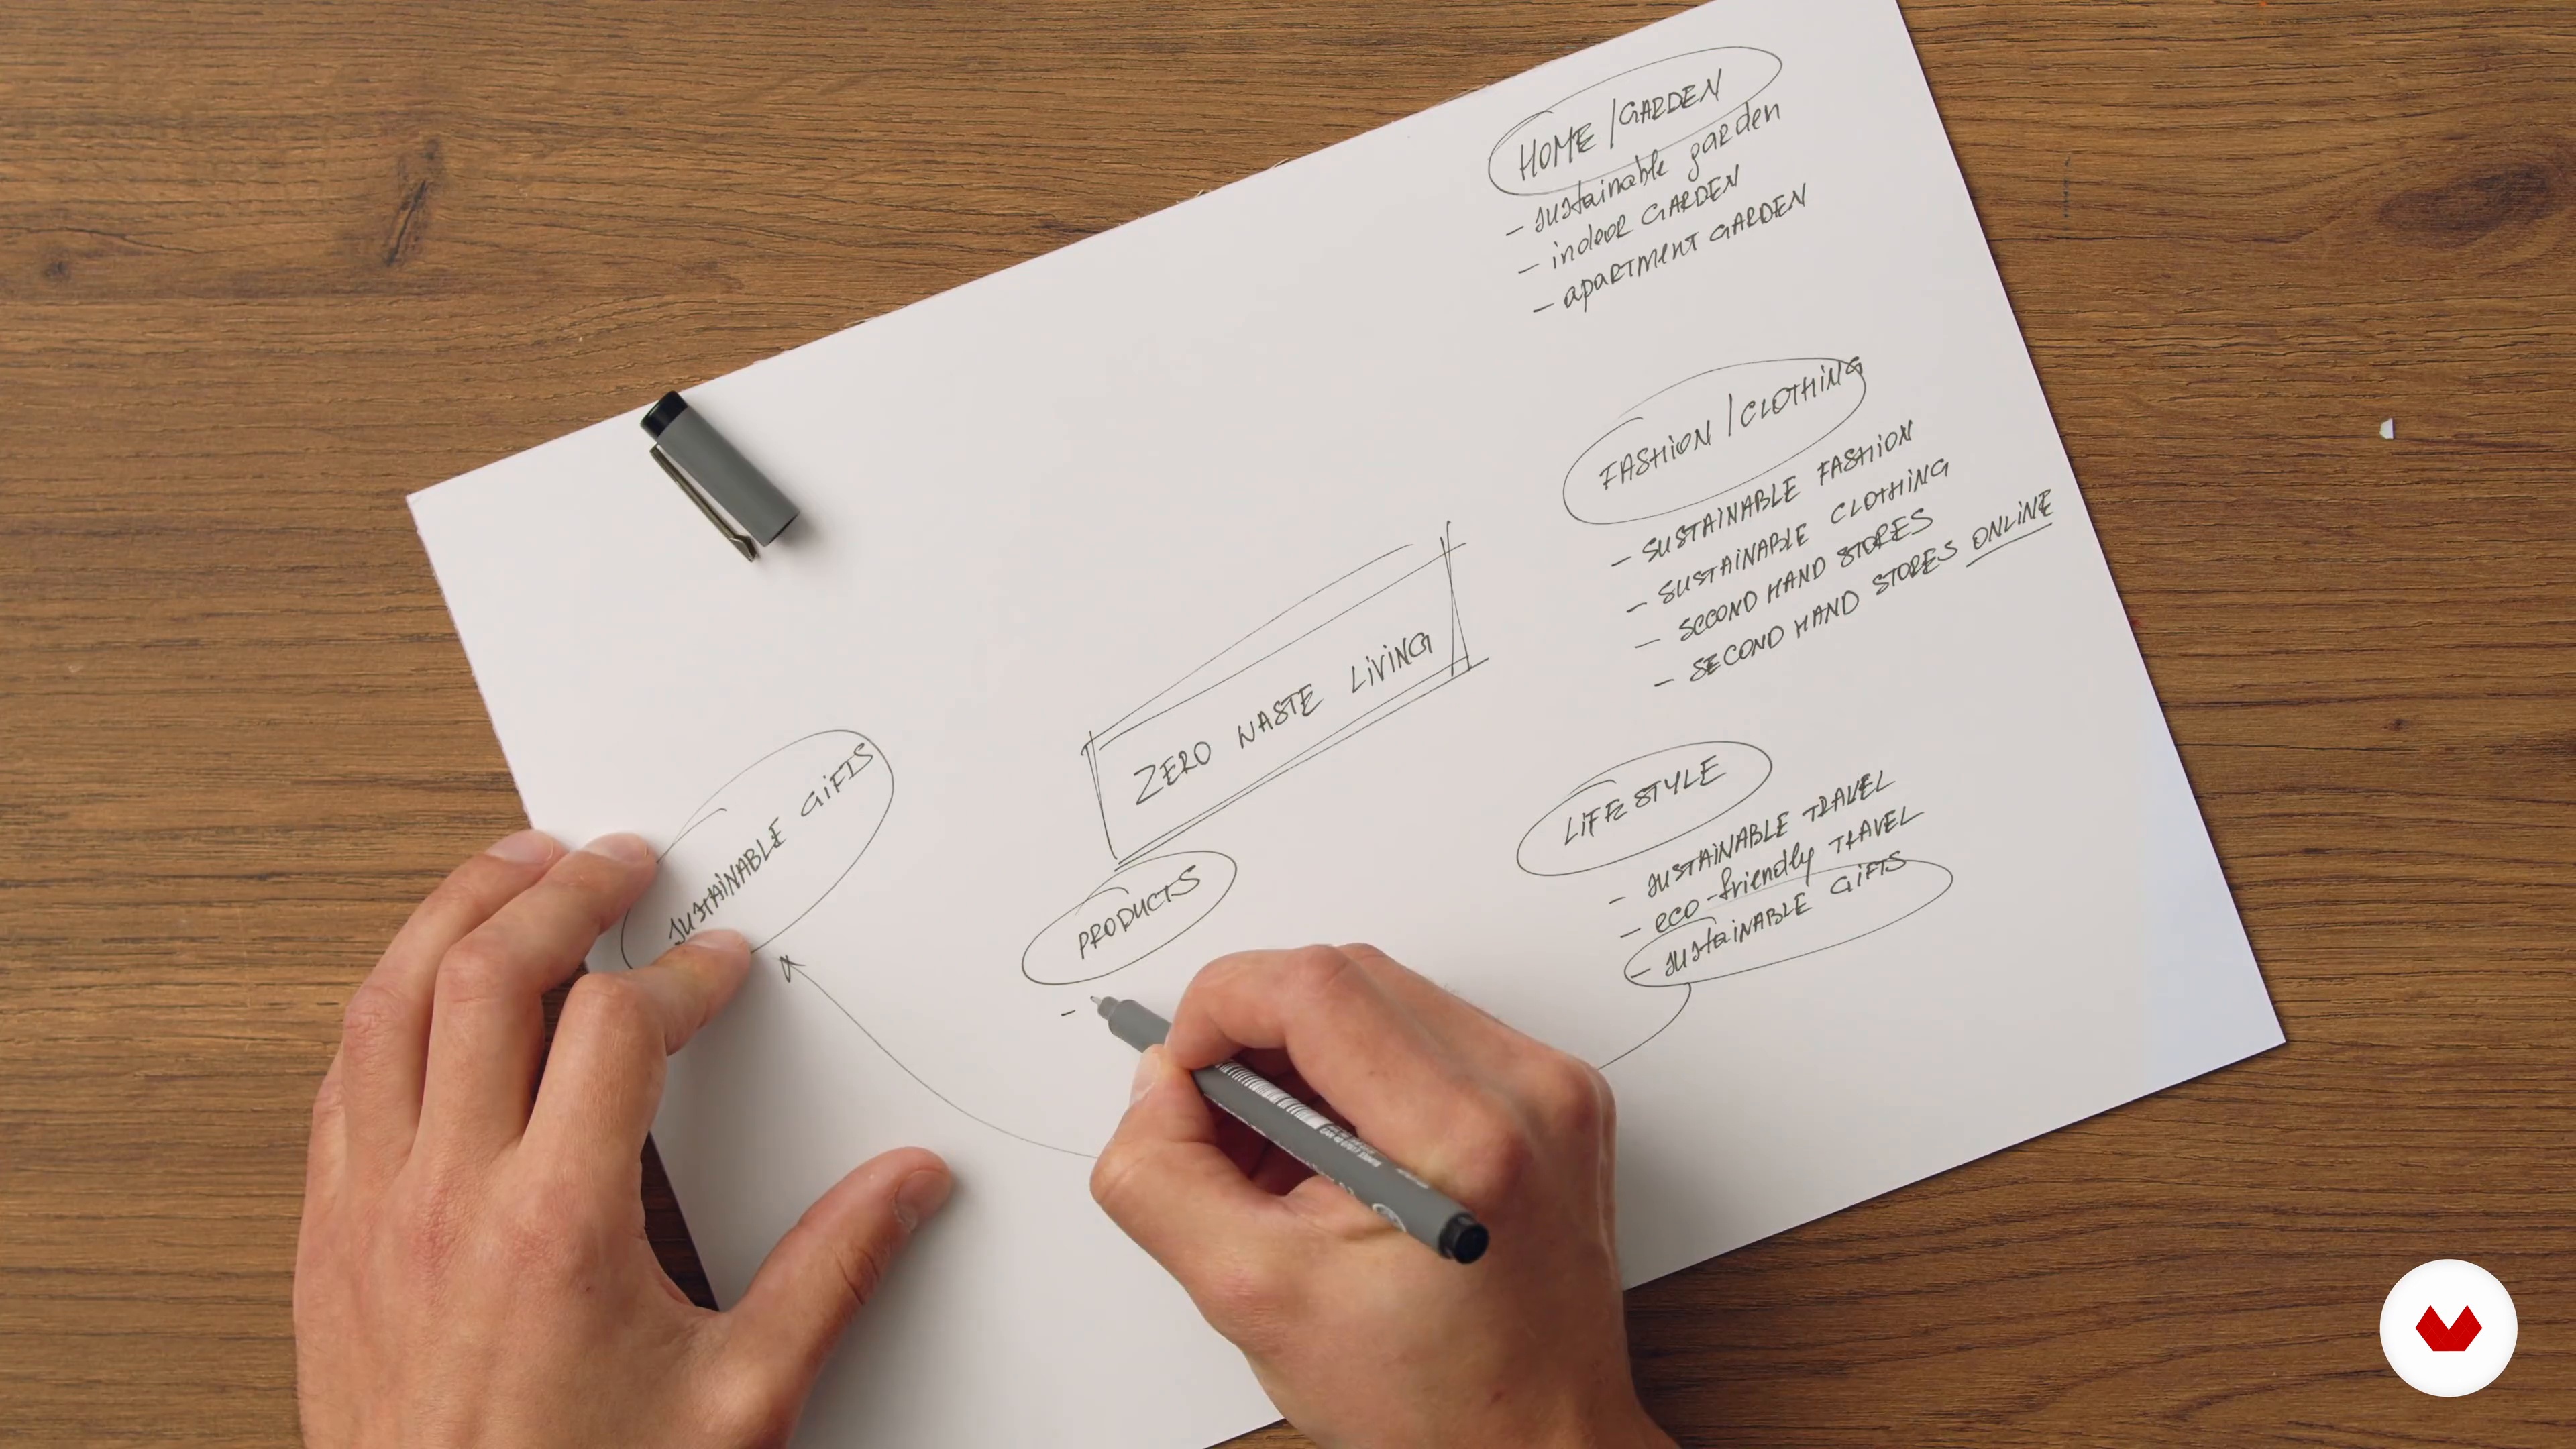 HOME/GARDEN
- sustainable garden
- indoor GARDEN
- apartment GARDEN
FASHION/CLOTHING
- SUSTAINABLE FASHION
- SUSTAINABLE CLOTHING
- SECOND HAND STORES
- SECOND HAND STORES ONLINE
ZERO WASTE LIVING
SUSTAINABLE GIFTS
PRODUCTS
-
LIFESTYLE
- SUSTAINABLE TRAVEL
- eco-friendly TRAVEL
- SUSTAINABLE GIFTS